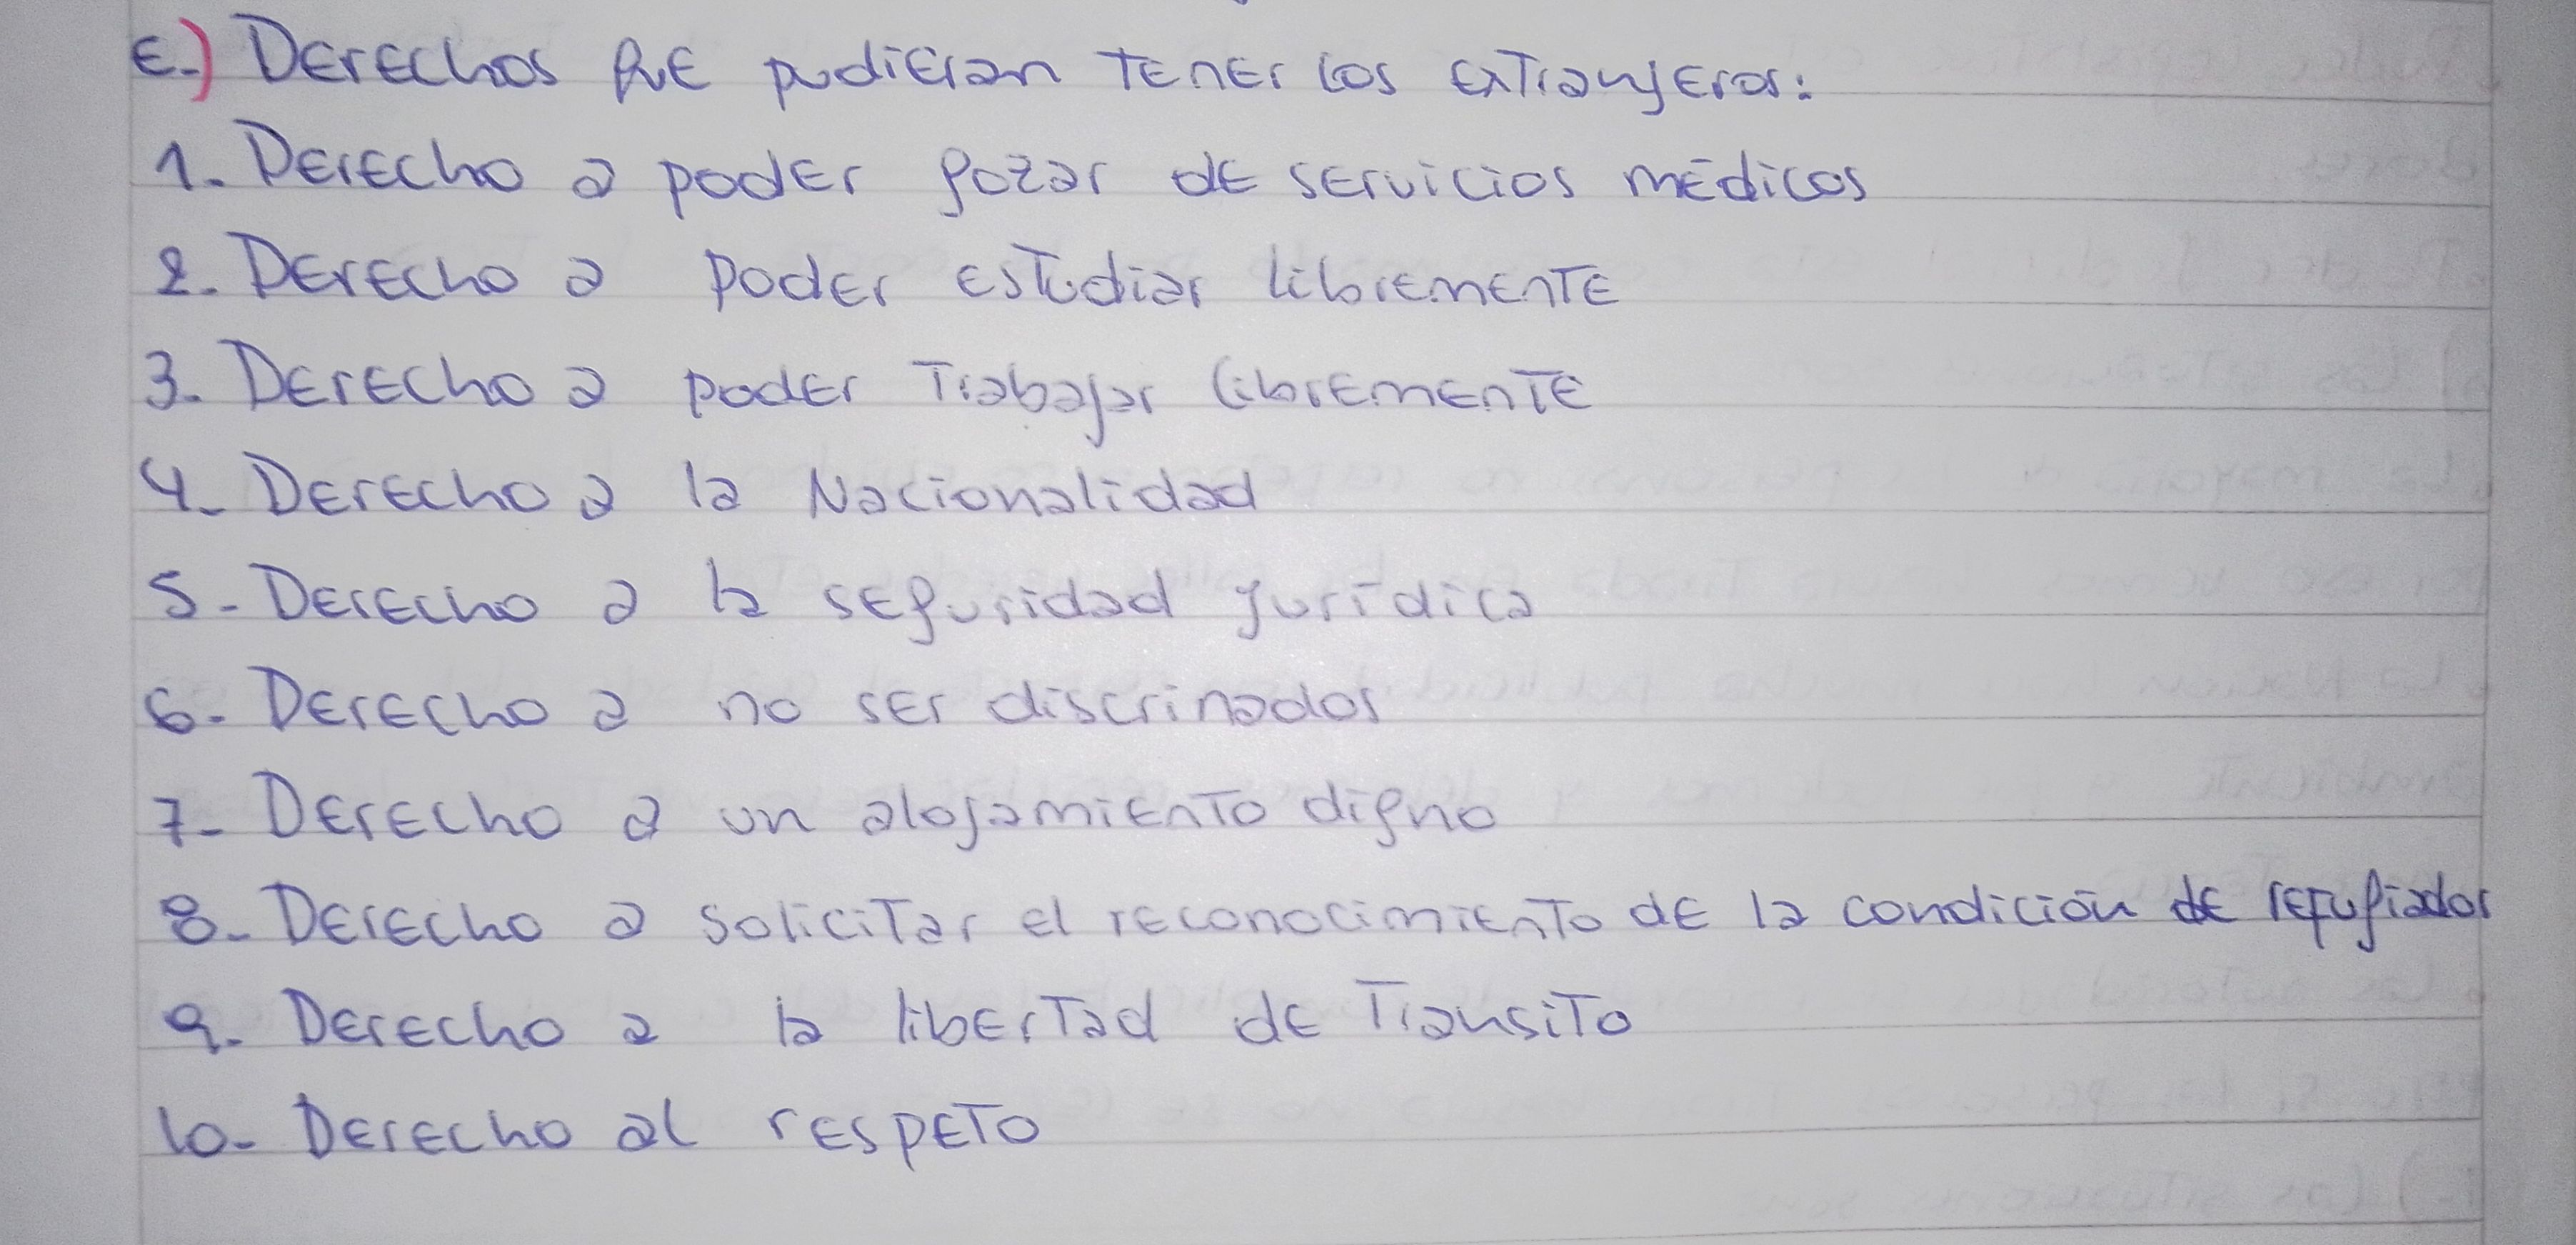 E.) Derechos que pudieran tener los extranjeros:
1. Derecho a poder gozar de servicios médicos
2. Derecho a poder estudiar libremente
3. Derecho a poder Trabajar libremente
4. Derecho a la Nacionalidad
5. Derecho a la seguridad jurídica
6. Derecho a no ser discrinados
7. Derecho a un alojamiento digno
8. Derecho a solicitar el reconocimiento de la condición de refugiados
9. Derecho a la libertad de Transito
10. Derecho al respeto